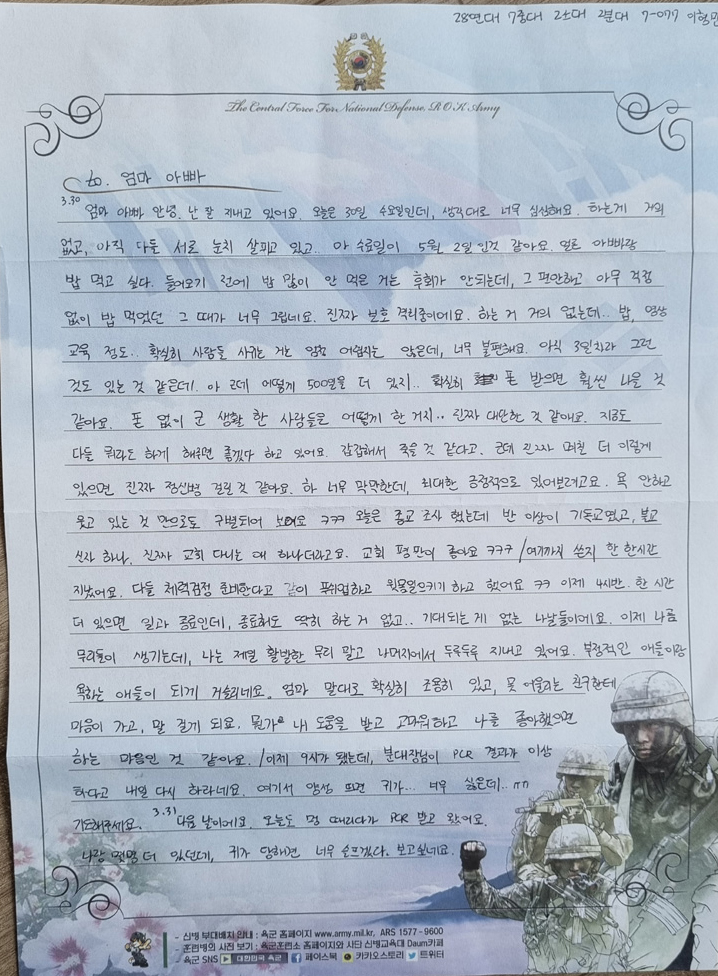 28연대 7중대 2소대 2분대 7-077 이형민
The Central Force For National Defense, R O K Army
to. 엄마 아빠
3.30 엄마 아빠 안녕. 난 잘 지내고 있어요. 오늘은 30일 수요일인데, 생각대로 너무 심심해요. 하는게 거의
없고, 아직 다들 서로 눈치 살피고 있고.. 아 수요일이 5월 2일인것 같아요. 얼른 아빠랑
밥 먹고 싶다. 들어오기 전에 밥 많이 안 먹은 거는 후회가 안되는데, 그 편안하고 아무 걱정
없이 밥 먹었던 그 때가 너무 그립네요. 진짜 보호 격리중이에요. 하는 거 거의 없는데.. 밥, 영상
교육 정도.. 확실히 사람들 사귀는 거는 엄청 어렵지는 않은데, 너무 불편해요. 아직 3일차라 그런
것도 있는 것 같은데. 아 근데 어떻게 500명을 더 있지.. 확실히 폰 받으면 훨씬 나을 것
같아요. 폰 없이 군 생활 한 사람들은 어떻게 한 거지.. 진짜 대단한 것 같애요. 지금도
다들 뭐라도 하게 해주면 좋겠다 하고 있어요. 갑갑해서 죽을 것 같다고. 근데 진짜 며칠 더 이렇게
있으면 진짜 정신병 걸릴 것 같아요. 하 너무 막막한데, 최대한 긍정적으로 있어보려고요. 욕 안하고
웃고 있는 것 만으로도 구별되어 보여요 ㅋㅋㅋ 오늘은 종교 조사 했는데 반 이상이 기독교였고, 불교
신자 하나. 진짜 교회 다니는 애 하나더라고요. 교회 평판이 좋아요 ㅋㅋㅋ /여기까지 쓴지 한 한시간
지났어요. 다들 체력검정 준비한다고 같이 푸쉬업하고 윗몸일으키기 하고 했어요 ㅋㅋ 이제 4시반. 한 시간
더 있으면 일과 종료인데, 종료해도 딱히 하는 거 없고.. 기대되는 게 없는 나날들이에요. 이제 나름
무리들이 생기는데, 나는 제일 활발한 무리 말고 나머지에서 두루두루 지내고 있어요. 부정적인 애들이랑
욕하는 애들이 되게 거슬리네요. 엄마 말대로 확실히 조용히 있고, 못 어울리는 친구한테
마음이 가고, 말 걸게 되요. 뭔가 내 도움을 받고 고마워하고 나를 좋아했으면
하는 마음인 것 같아요. /이제 9시가 됐는데, 분대장님이 PCR 결과가 이상
하다고 내일 다시 하라네요. 여기서 양성 뜨면 귀가... 너무 싫은데.. ㅠㅠ
기도해주세요. 3.31 다음 날이에요. 오늘도 멍 때리다가 PCR 받고 왔어요.
나랑 몇명 더 있던데, 귀가 당하면 너무 슬프겠다. 보고싶네요.
- 신병 부대배치 안내 : 육군 홈페이지 www.army.mil.kr, ARS 1577 - 9600
- 훈련병의 사진 보기 : 육군훈련소 홈페이지와 사단 신병교육대 Daum카페
- 육군 SNS 대한민국 육군 페이스북 카카오스토리 트위터